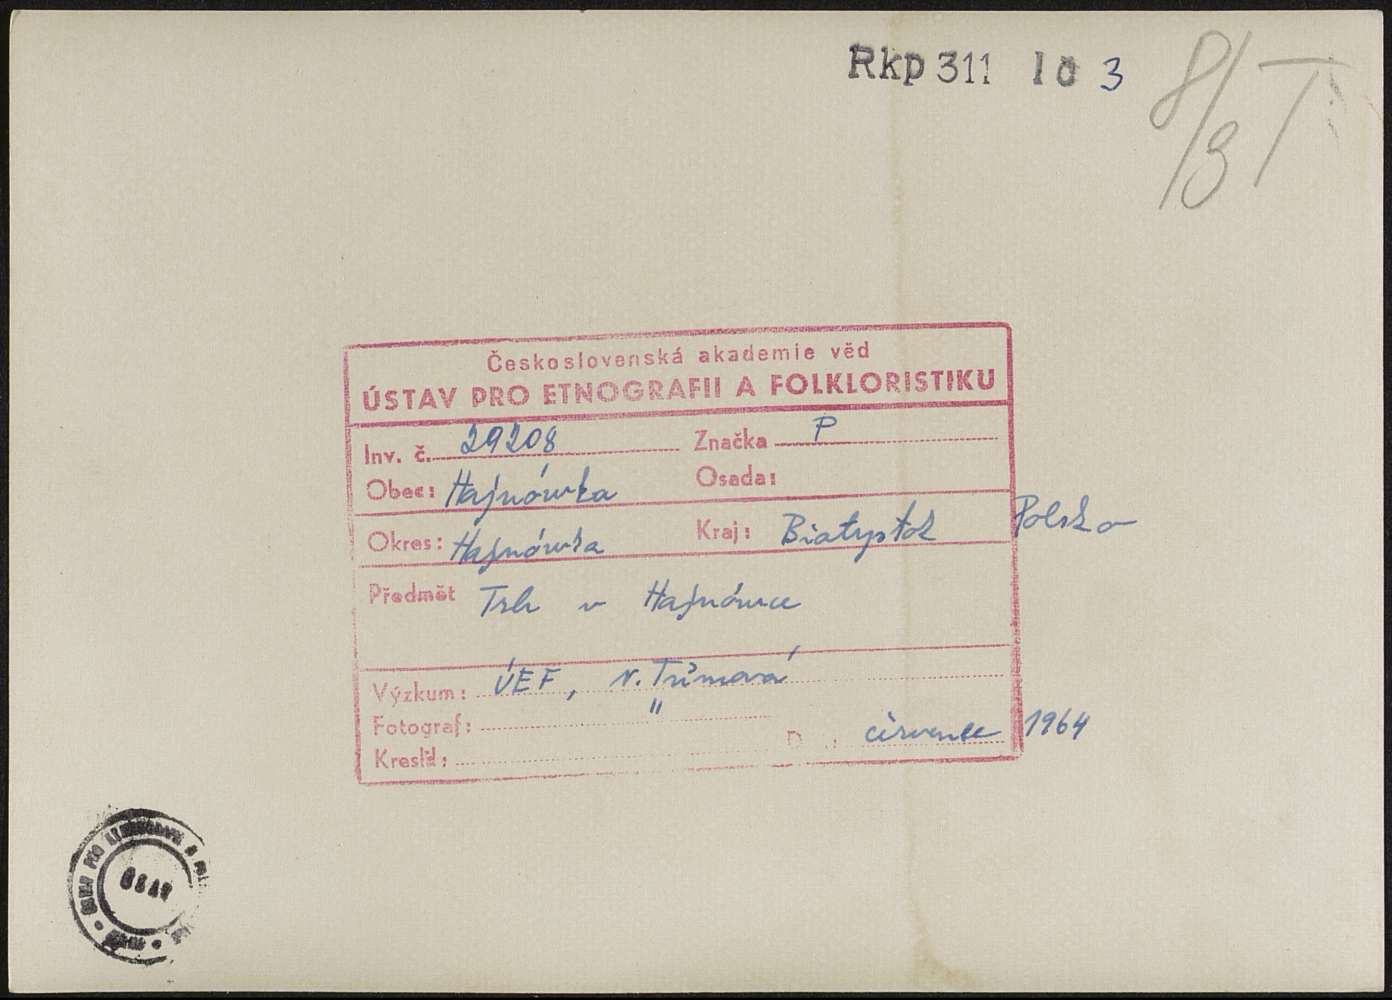 Rkp 311 10 3
8/8 T
Československá akademie věd
ÚSTAV PRO ETNOGRAFII A FOLKLORISTIKU
Inv. č. 29208 Značka P
Obec: Hajnówka Osada:
Okres: Hajnówka Kraj: Białystok Polsko
Předmět Trh v Hajnówce
Výzkum: ÚEF, V. Tůmová
Fotograf: "
Kreslil: D červenec 1964
ÚSTAV PRO ETNOGRAFII A
ČSAV